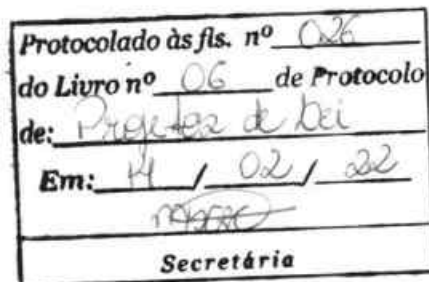 Protocolado às fls. nº 026
do Livro nº 06 de Protocolo
de: Projetos de Lei
Em: 14 / 02 / 22
Secretária